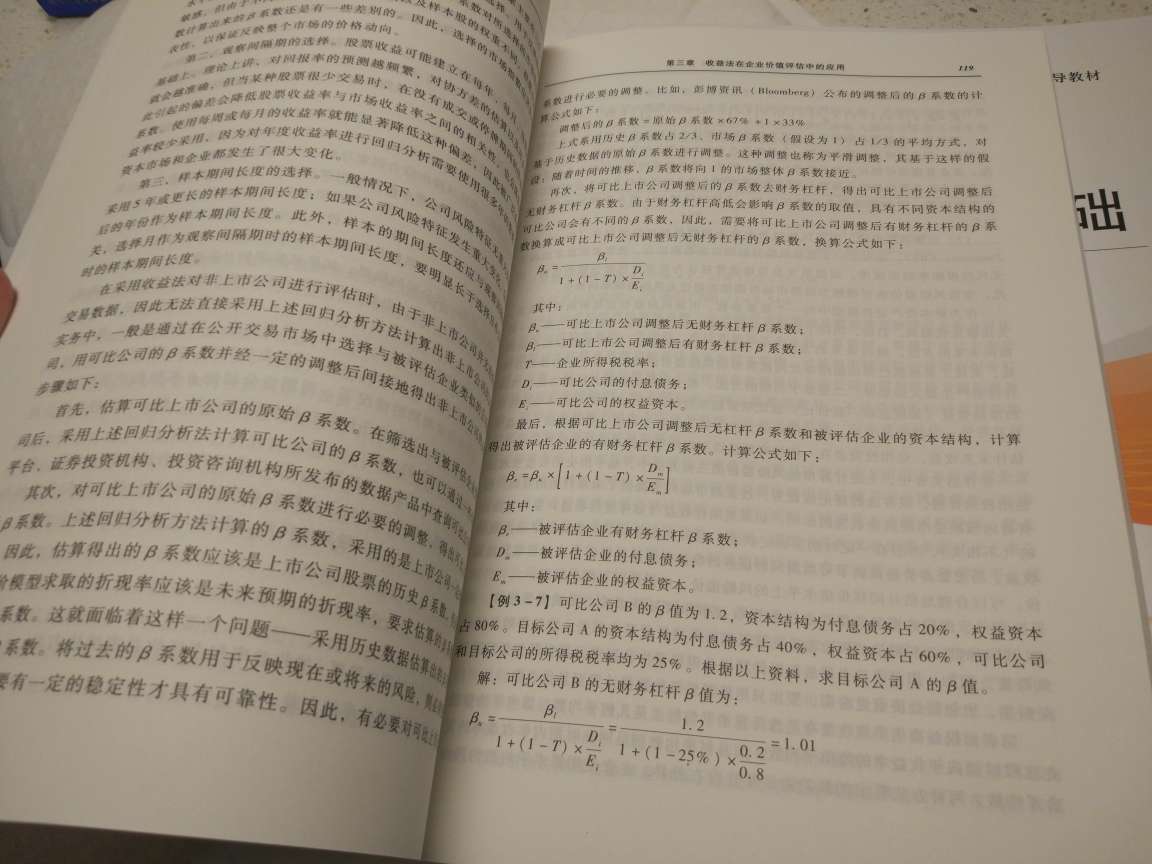 敏感，但由于
数计算出来的β系数还是有一些差别的。因此，选择的市场指数
表性，以保证反映整个市场的价格动向。
第二，观察间隔期的选择。股票收益可能建立在每年、每月、
基础上。理论上讲，对回报率的预测越频繁，对协方差的估算
就会越准确，但当某种股票很少交易时，在没有成交或停牌期间
此引起的偏差会降低股票收益率与市场收益率之间的相关性，
系数。使用每周或每月的收益率就能显著降低这种偏差，因此
益率较少采用，因为对年度收益率进行回归分析需要使用很多年
资本市场和企业都发生了很大变化。
第三，样本期间长度的选择。一般情况下，公司风险特征无重大
采用5年或更长的样本期间长度；如果公司风险特征发生重大变化
后的年份作为样本期间长度。此外，样本的期间长度还应与观察
关，选择月作为观察间隔期时的样本期间长度，要明显长于选择
时的样本期间长度。
在采用收益法对非上市公司进行评估时，由于非上市公司
交易数据，因此无法直接采用上述回归分析方法计算出非上市公司
实务中，一般是通过在公开交易市场中选择与被评估企业类似的
司，用可比公司的β系数并经一定的调整后间接地得出非上市公司
步骤如下：
首先，估算可比上市公司的原始β系数。在筛选出与被评估
司后，采用上述回归分析法计算可比公司的β系数，也可以通过
平台、证券投资机构、投资咨询机构所发布的数据产品中查询
其次，对可比上市公司的原始β系数进行必要的调整，得出
β系数。上述回归分析方法计算的β系数，采用的是上市公司
因此，估算得出的β系数应该是上市公司股票的历史β系数，
价模型求取的折现率应该是未来预期的折现率，要求估算的
系数。这就面临着这样一个问题——采用历史数据估算出的
系数。将过去的β系数用于反映现在或将来的风险，则
要有一定的稳定性才具有可靠性。因此，有必要对可比上
第三章 收益法在企业价值评估中的应用 119
系数进行必要的调整。比如，彭博资讯（Bloomberg）公布的调整后的β系数的计
算公式如下：
调整后的β系数=原始β系数×67%+1×33%
上式系用历史β系数占2/3、市场β系数（假设为1）占1/3的平均方式，对
基于历史数据的原始β系数进行调整。这种调整也称为平滑调整，其基于这样的假
设：随着时间的推移，β系数将向1的市场整体β系数接近。
再次，将可比上市公司调整后的β系数去财务杠杆，得出可比上市公司调整后
无财务杠杆β系数。由于财务杠杆高低会影响β系数的取值，具有不同资本结构的
可比公司会有不同的β系数，因此，需要将可比上市公司调整后有财务杠杆的β系
数换算成可比上市公司调整后无财务杠杆的β系数，换算公式如下：
βu=βl/(1+(1-T)×Di/Ei)
其中：
βu——可比上市公司调整后无财务杠杆β系数；
βl——可比上市公司调整后有财务杠杆β系数；
T——企业所得税税率；
Di——可比公司的付息债务；
Ei——可比公司的权益资本。
最后，根据可比上市公司调整后无杠杆β系数和被评估企业的资本结构，计算
得出被评估企业的有财务杠杆β系数。计算公式如下：
βe=βu×[1+(1-T)×Dm/Em]
其中：
βe——被评估企业有财务杠杆β系数；
Dm——被评估企业的付息债务；
Em——被评估企业的权益资本。
【例3-7】可比公司B的β值为1.2，资本结构为付息债务占20%，权益资本
占80%。目标公司A的资本结构为付息债务占40%，权益资本占60%，可比公司
和目标公司的所得税税率均为25%。根据以上资料，求目标公司A的β值。
解：可比公司B的无财务杠杆β值为：
βu=βl/(1+(1-T)×Di/Ei)=1.2/(1+(1-25%)×0.2/0.8)=1.01
导教材
础